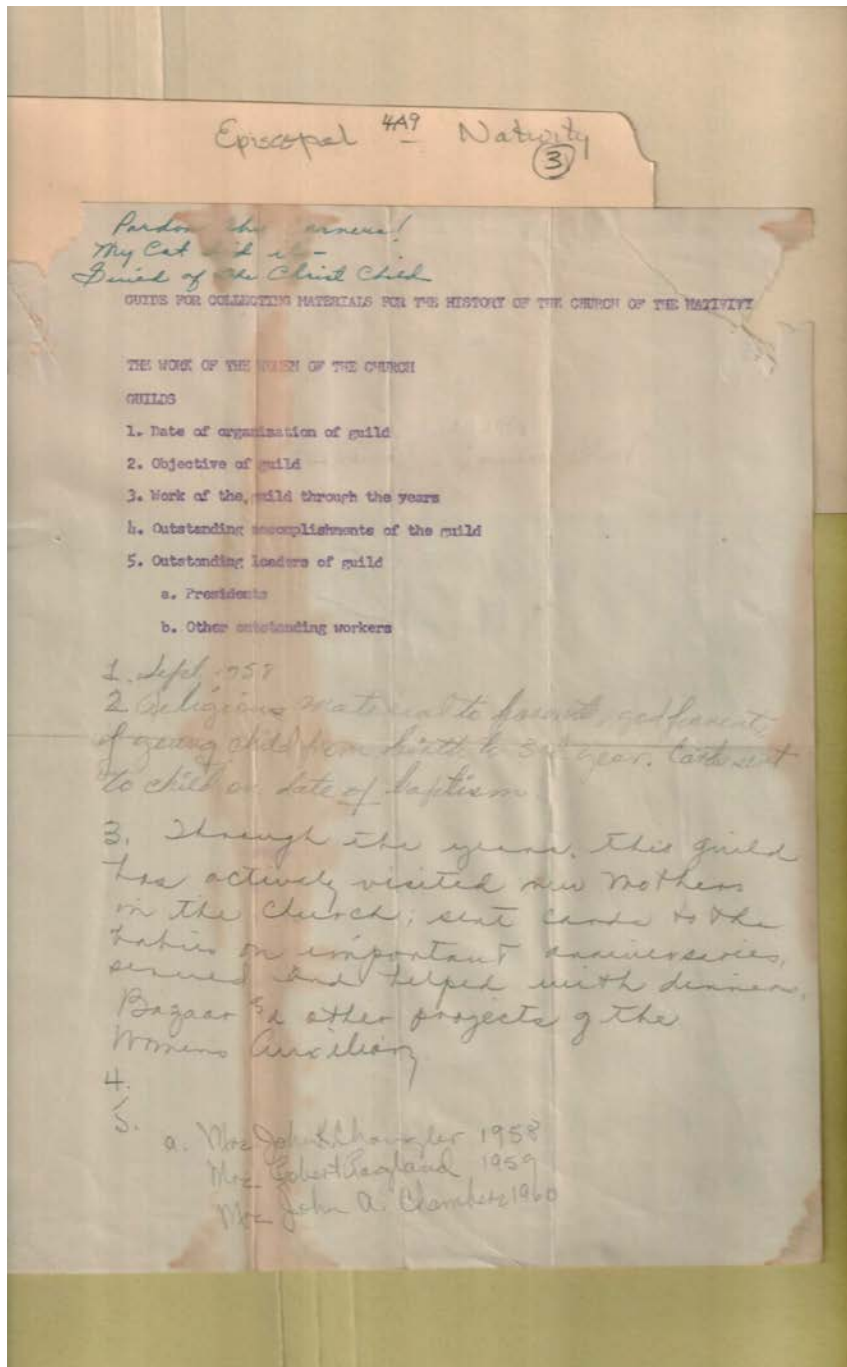 Episcopal 4A9 Nativity
3
Pardon the corners!
My Cat did it-
Guild of the Christ Child
GUIDE FOR COLLECTING MATERIALS FOR THE HISTORY OF THE CHURCH OF THE NATIVIVY
THE WORK OF THE WOMEN OF THE CHURCH
GUILDS
1. Date of organization of guild
2. Objective of guild
3. Work of the, guild through the years
4. Outstanding accomplishments of the guild
5. Outstanding leaders of guild
a. Presidents
b. Other outstanding workers
1. Sept 1958
2 Religious material to parents, godparents
of young child from birth to 3rd year. Cards sent
to child on date of baptism
3. Through the years, this guild
has actively visited new mothers
in the church; sent cards to the
babies on important anniversaries,
served and helped with dinners,
Bazaar and other projects of the
Womens Auxiliary
4.
5.
a. Mrs John Chandler 1958
Mrs Robert Ragland 1959
Mrs John A. Chambers 1960